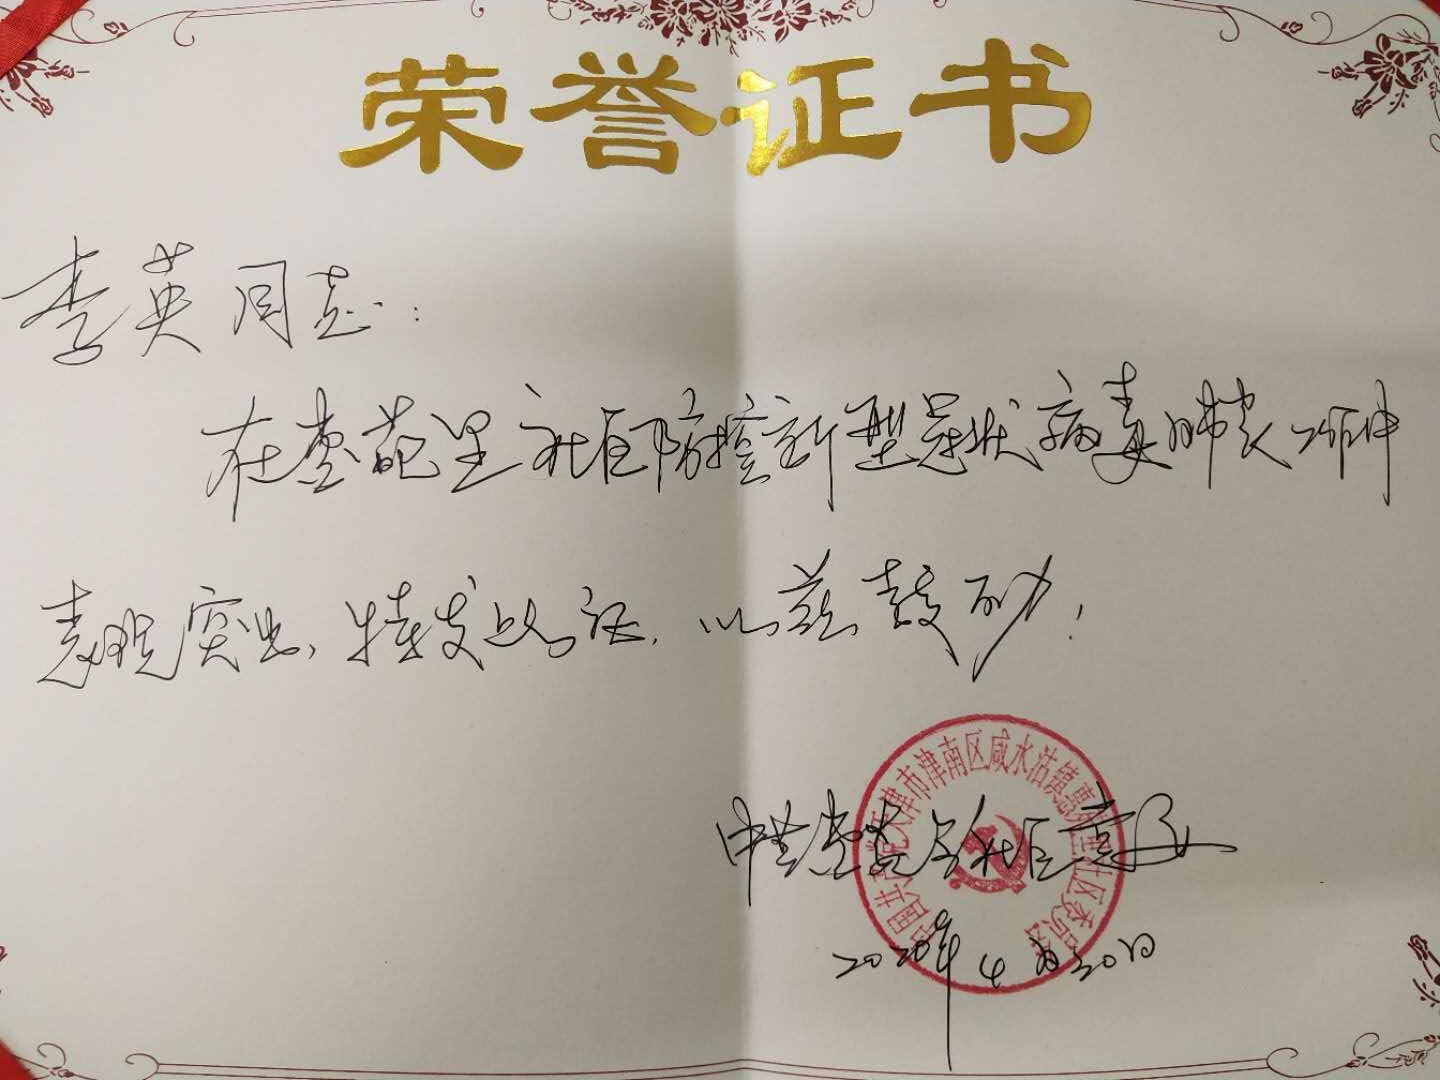 荣誉证书
李英同志：
在枣苑里社区防控新型冠状病毒肺炎工作中
表现突出，特发此证，以兹鼓励！
中共枣苑里社区委员会
中国共产党天津市津南区咸水沽镇惠苑里社区委员会
2020年4月30日